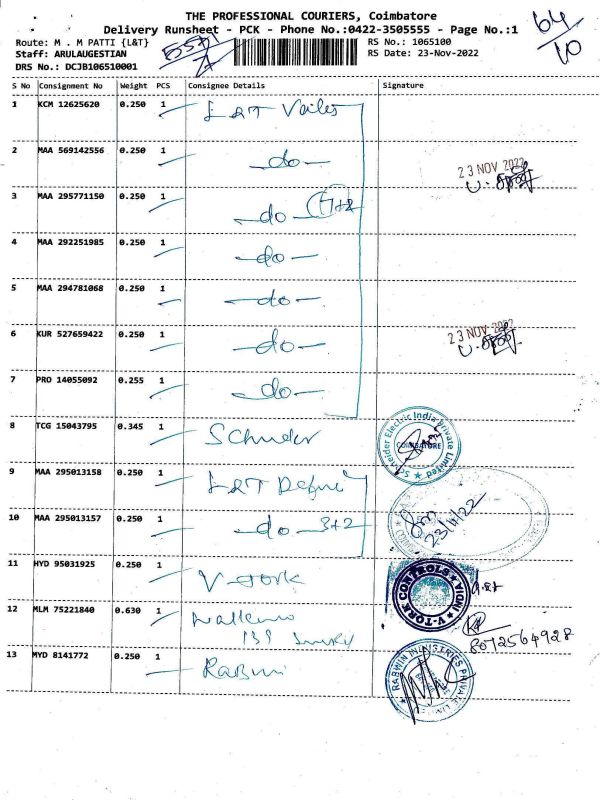 THE PROFESSIONAL COURIERS, Coimbatore
Delivery Runsheet - PCK - Phone No.:0422-3505555 - Page No.:1
64/10
Route: M . M PATTI {L&T}
RS No.: 1065100
Staff: ARULAUGESTIAN
RS Date: 23-Nov-2022
DRS No.: DCJB106510001
S No Consignment No Weight PCS Consignee Details Signature
1 KCM 12625620 0.250 1 L&T
2 MAA 569142556 0.250 1 -do-
23 NOV 2022
3 MAA 295771150 0.250 1 -do- 7+2
4 MAA 292251985 0.250 1 -do-
5 MAA 294781068 0.250 1 -do-
6 KUR 527659422 0.250 1 -do-
23 NOV 2022
7 PRO 14055092 0.255 1 -do-
8 TCG 15043795 0.345 1
Electric India Private Limited
COIMBATORE
9 MAA 295013158 0.250 1 L&T
10 MAA 295013157 0.250 1 -do- 3+2
23/11/22
11 HYD 95031925 0.250 1 V-tork
V-TORK CONTROLS
12 MLM 75221840 0.630 1
8072564928
13 MYD 8141772 0.250 1
RABWIN INDUSTRIES PRIVATE LIMITED